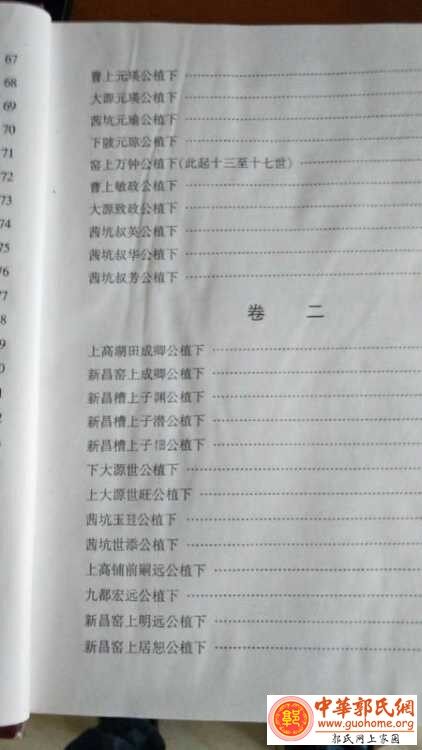 67
68
69
70
71
72
73
74
75
76
77
曹上元瑛公植下
大源元瑛公植下
茜坑元瑜公植下
下陂元琮公植下
窑上万钟公植下(此起十三至十七世)
曹上敏政公植下
大源致政公植下
茜坑叔英公植下
茜坑叔华公植下
茜坑叔芳公植下
卷 二
上高湖田成卿公植下
新昌窑上成卿公植下
新昌槽上子渊公植下
新昌槽上子潜公植下
新昌槽上子 公植下
下大源世公植下
上大源世旺公植下
茜坑玉 公植下
茜坑世添公植下
上高铺前嗣远公植下
九都宏远公植下
新昌窑上明远公植下
新昌窑上居恕公植下
中華郭氏網
www.guohome.org
郭氏网上家园